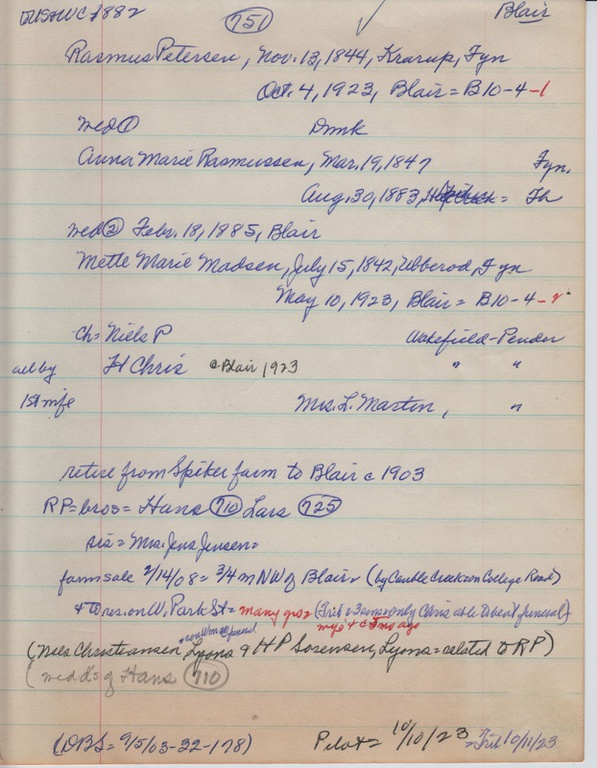 (751) Blair
Rasmus Petersen, Nov. 13, 1844, Krarup, Fyn
Oct. 4, 1923, Blair = B10-4-1
med ① Dmk
Anna Marie Rasmussen, Mar. 19, 1847 Fyn.
Aug. 30, 1883, = Th
med ② Febr. 18, 1885, Blair
Mette Marie Madsen, July 15, 1842, Ubberod, Fyn
May 10, 1923, Blair = B10-4-2
Ch = Niels P Wakefield-Pender
all by H Chris @ Blair 1923 " "
1st wife Mrs. L. Marten, "
retire from Spiker farm to Blair c 1903
RP = bros = Hans (710) Lars (725)
sis = Mrs. Jens Jensen =
farm sale 2/14/08 = 3/4 m NW of Blair (by Cauble Creek on College Road)
& to res. on W. Park St = many yrs (Trib = 3 sons only Chris able to be at funeral)
wife + c 5 mo ago
(Niels Christiansen, Lyons & H P Sorensen, Lyons = related to RP)
(med d's of Hans (710)
(DBS = 9/5/03-32-178) Pilot = 10/10/23 = Trib 10/11/23